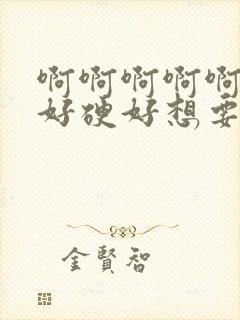 啊啊啊啊啊
好硬好想要
金賢智